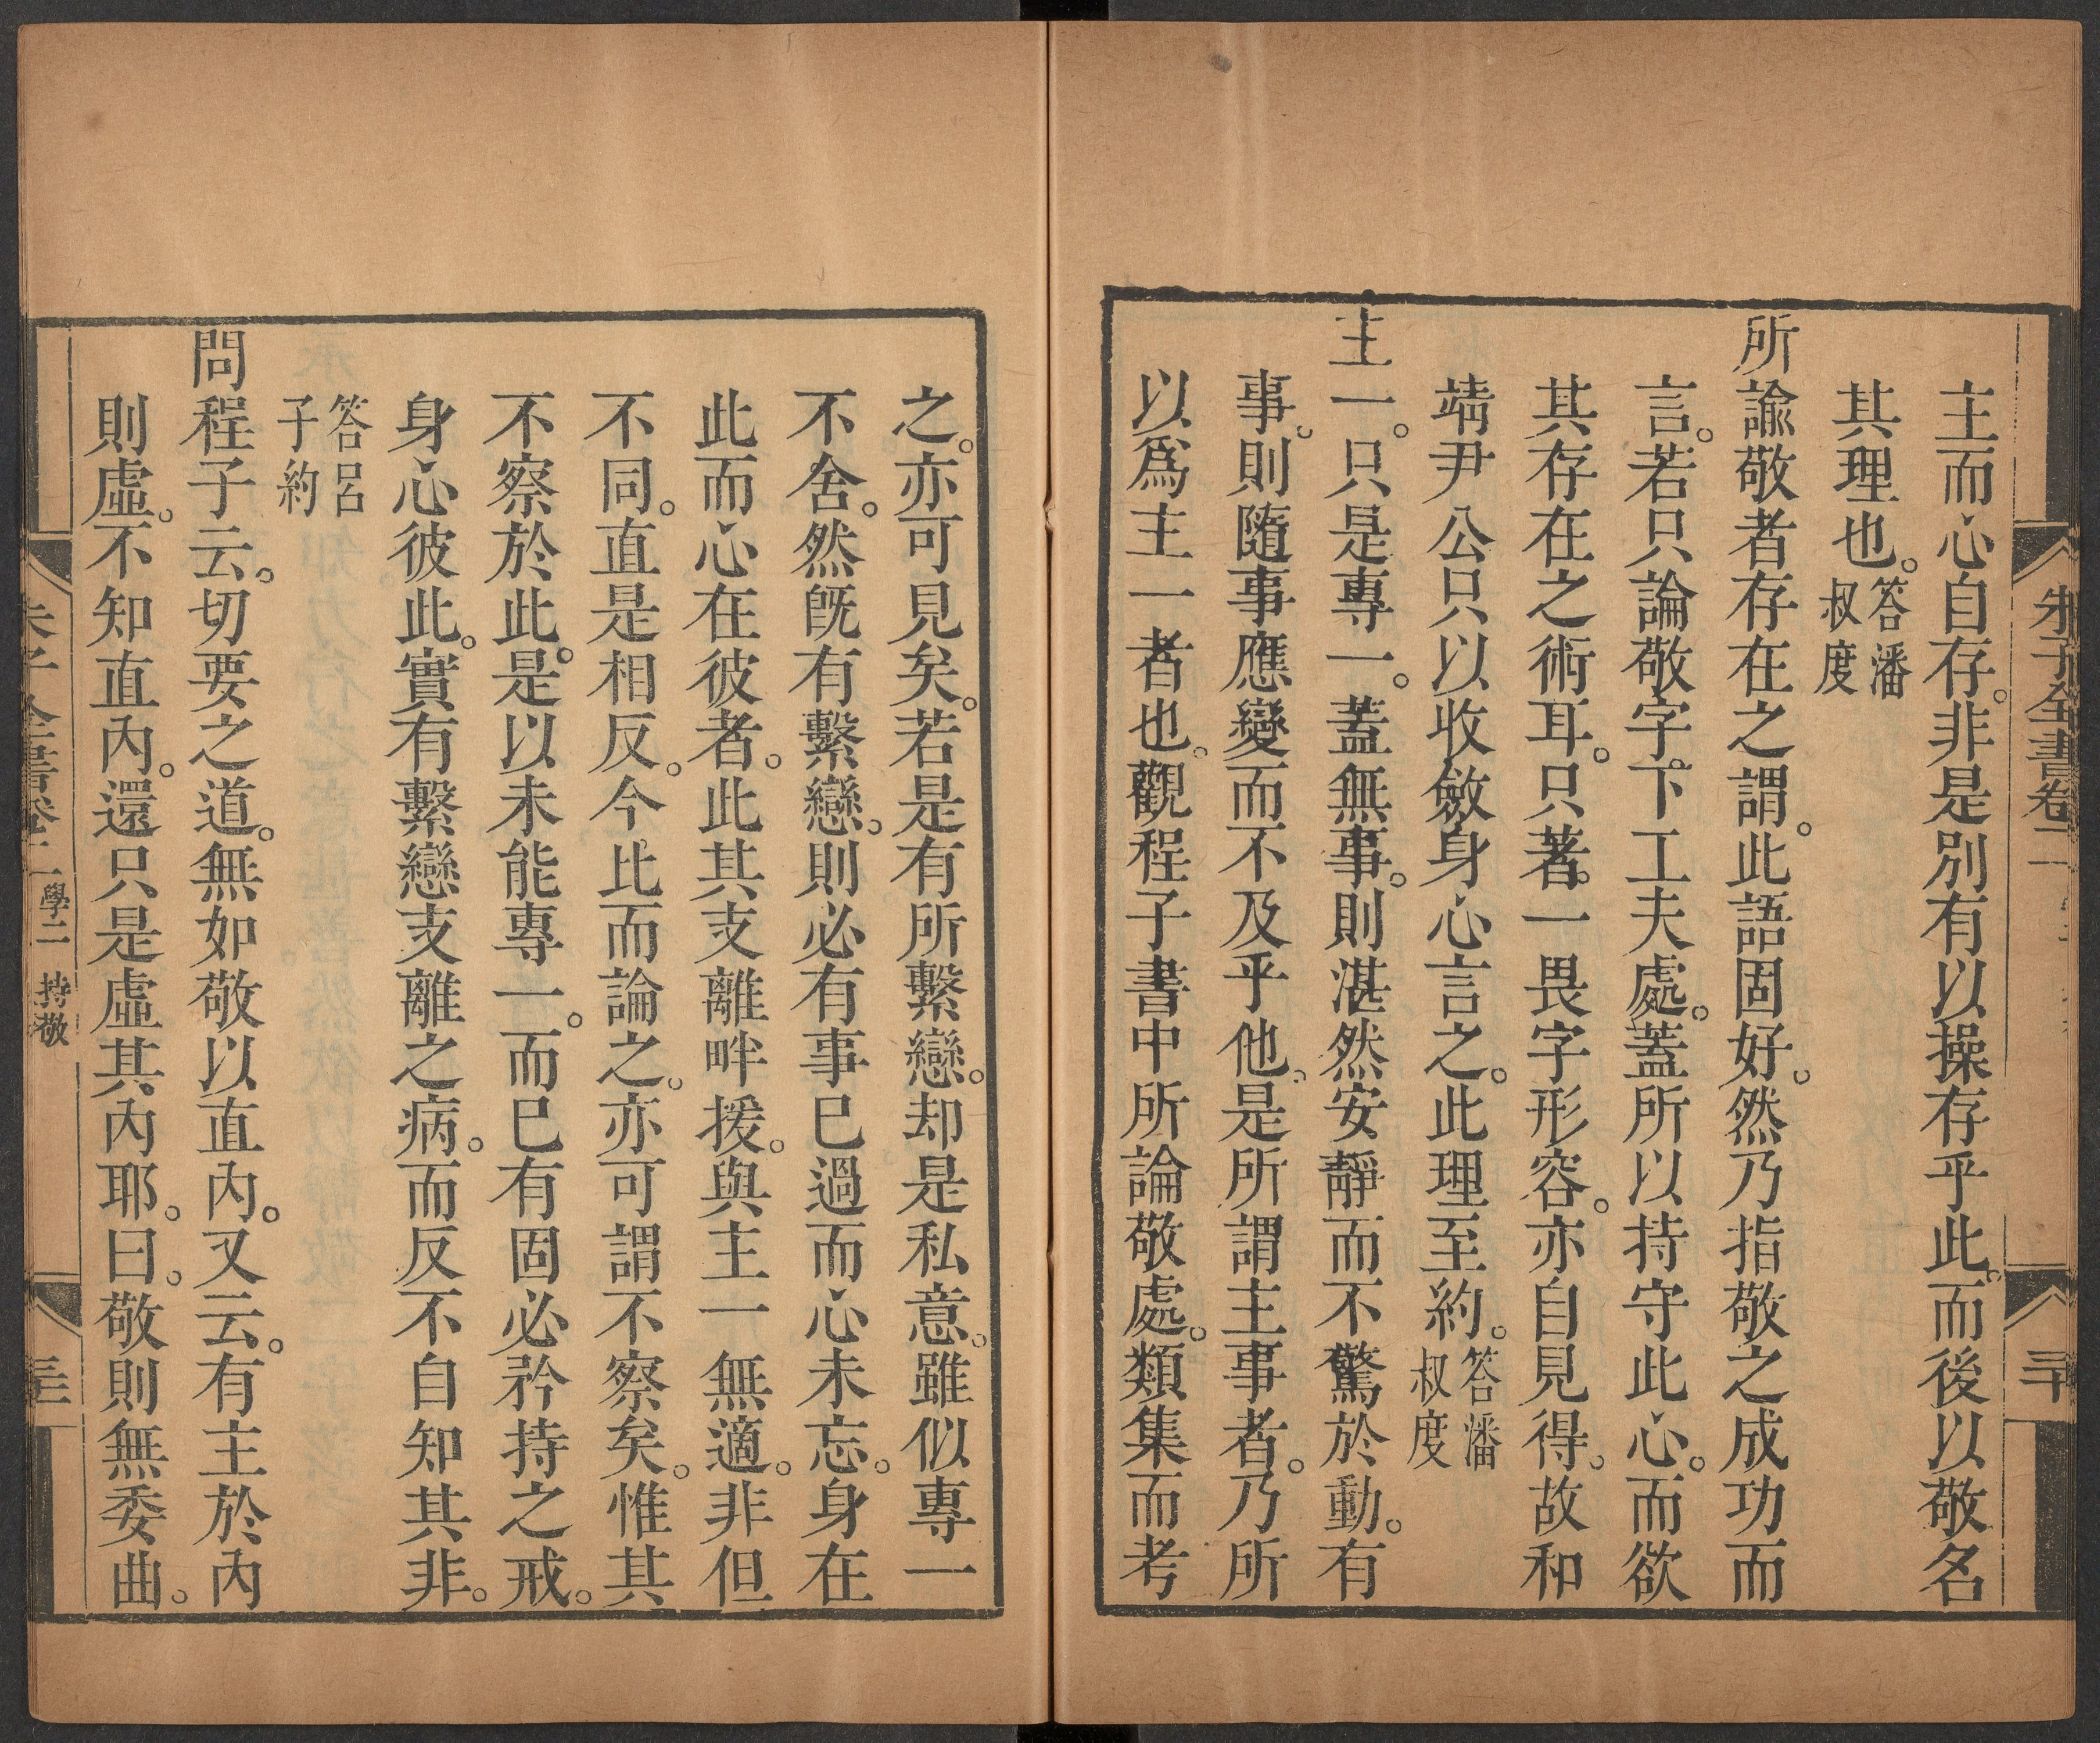 朱子全書卷二
三十
主而心自存。非是別有以操存乎此。而後以敬名
其理也。答潘叔度
所諭敬者存在之謂。此語固好。然乃指敬之成功而
言。若只論敬字下工夫處。蓋所以持守此心。而欲
其存在之術耳。只著一畏字形容。亦自見得。故和
靖尹公只以收斂身心言之。此理至約。答潘叔度
主一。只是專一。蓋無事。則湛然安靜而不驚於動。有
事。則隨事應變而不及乎他。是所謂主事者。乃所
以爲主一者也。觀程子書中所論敬處。類集而考
之。亦可見矣。若是有所繫戀。却是私意。雖似專一
不舍。然旣有繫戀。則必有事已過而心未忘。身在
此而心在彼者。此其支離畔援。與主一無適。非但
不同。直是相反。今比而論之。亦可謂不察矣。惟其
不察於此。是以未能專一。而已有固必矜持之戒。
身心彼此。實有繫戀支離之病。而反不自知其非。
答呂子約
問程子云。切要之道。無如敬以直內。又云。有主於內
則虛。不知直內。還只是虛其內耶。曰。敬則無委曲。
朱子全書卷二 學二 持敬